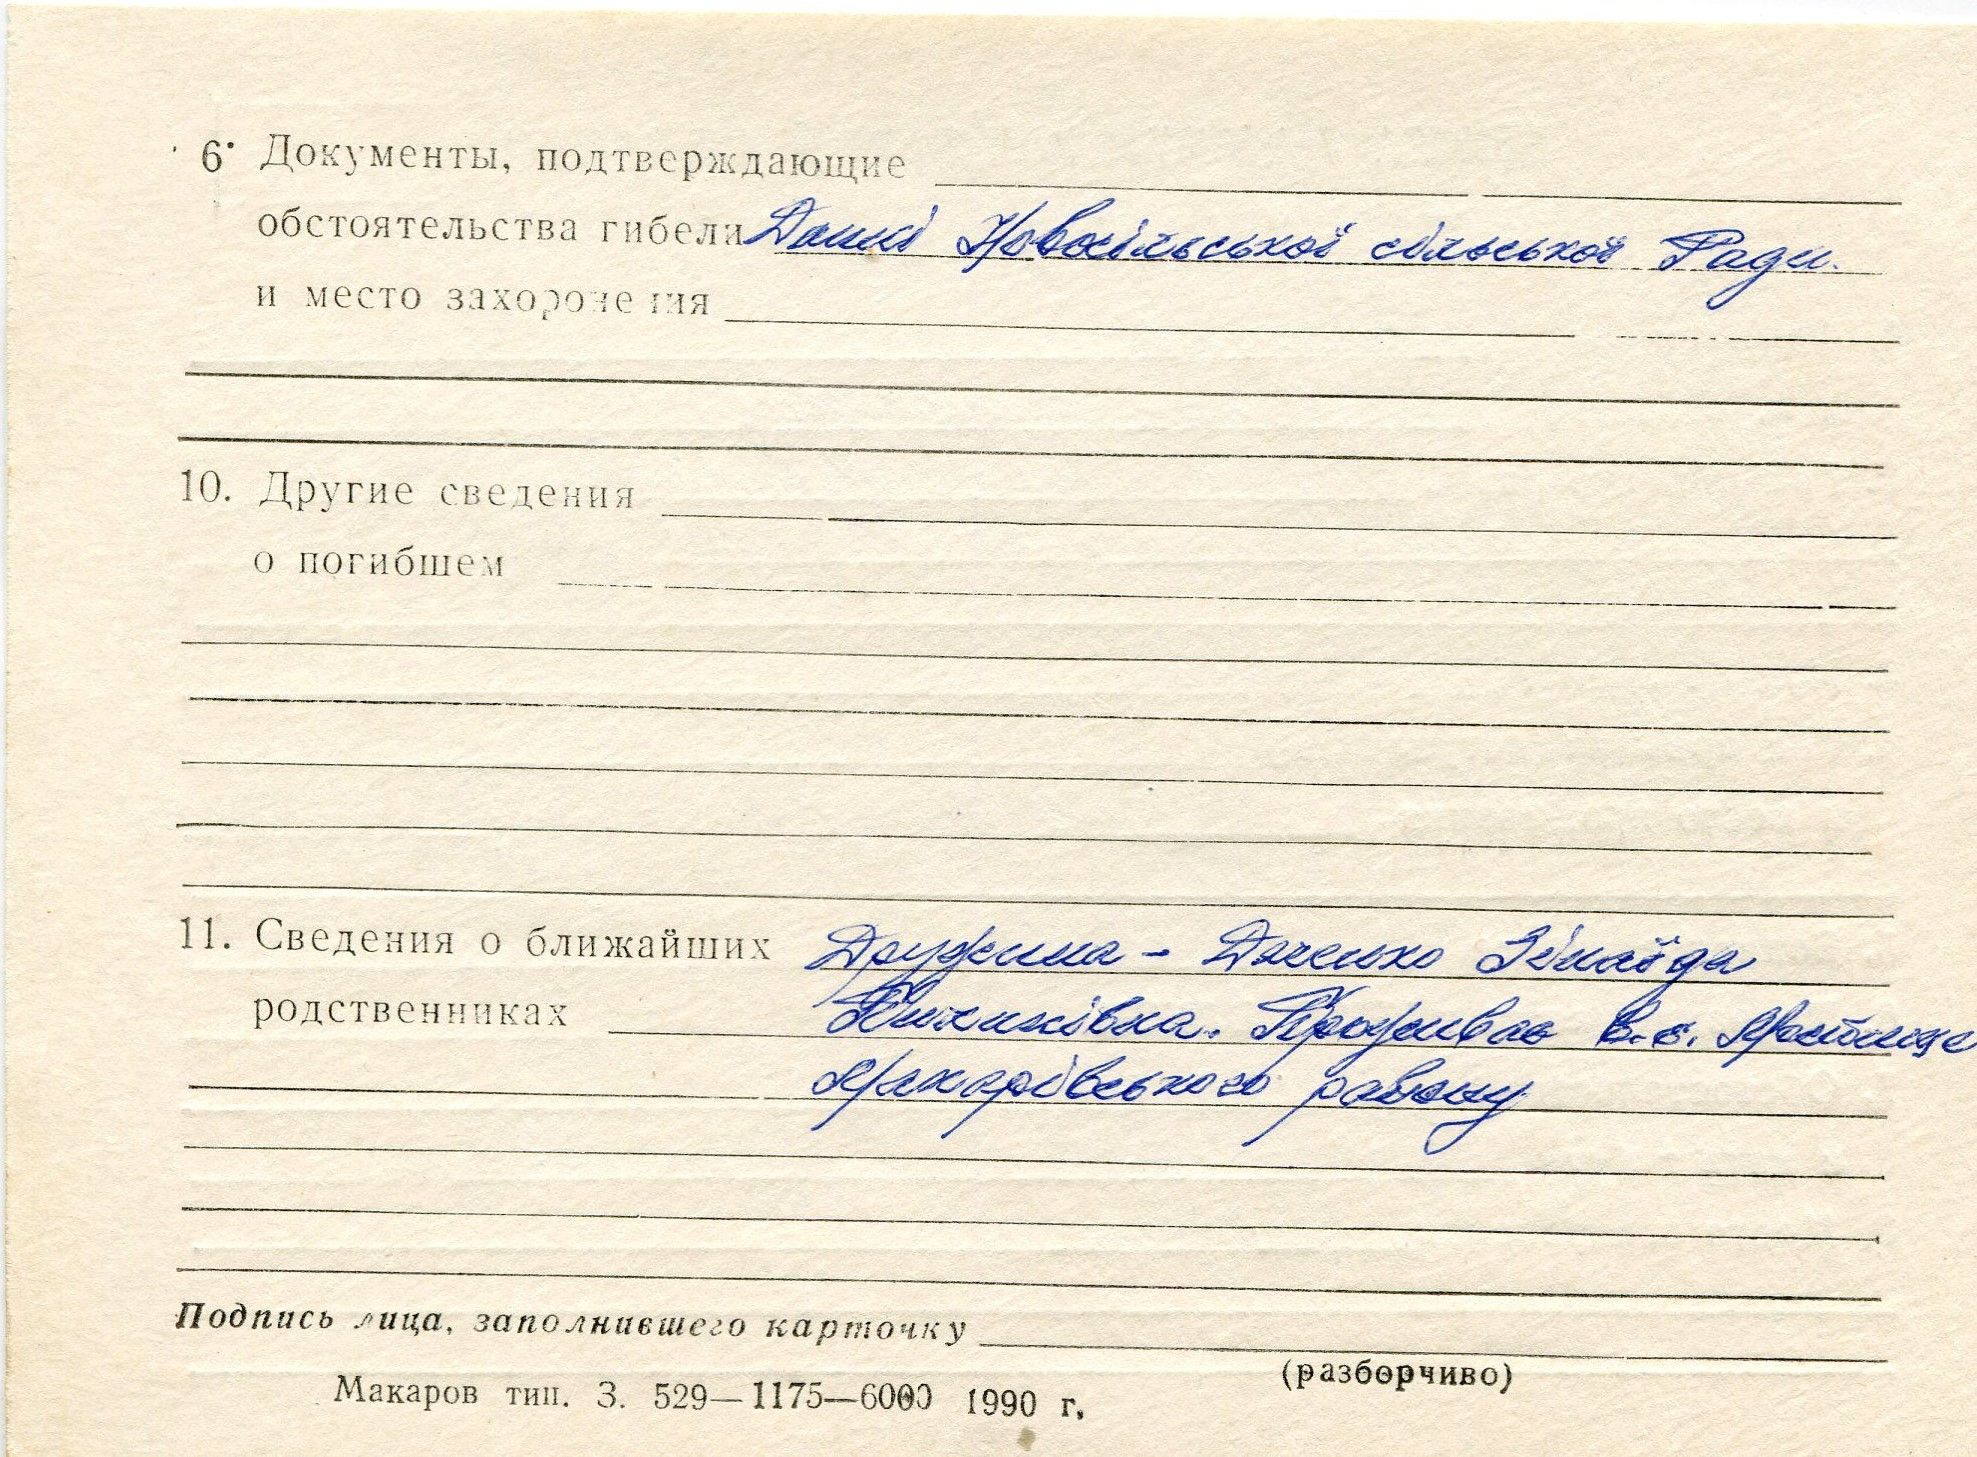 6. Документы, подтверждающие
обстоятельства гибели Данні Новосільської сільської Ради.
и место захоронения
10. Другие сведения
о погибшем
11. Сведения о ближайших Дружина - Дяченко Зінаїда
родственниках Проживає в с. Мостище
Макарівського району
Подпись лица, заполнившего карточку
(разборчиво)
Макаров тип. З. 529—1175—6000 1990 г.